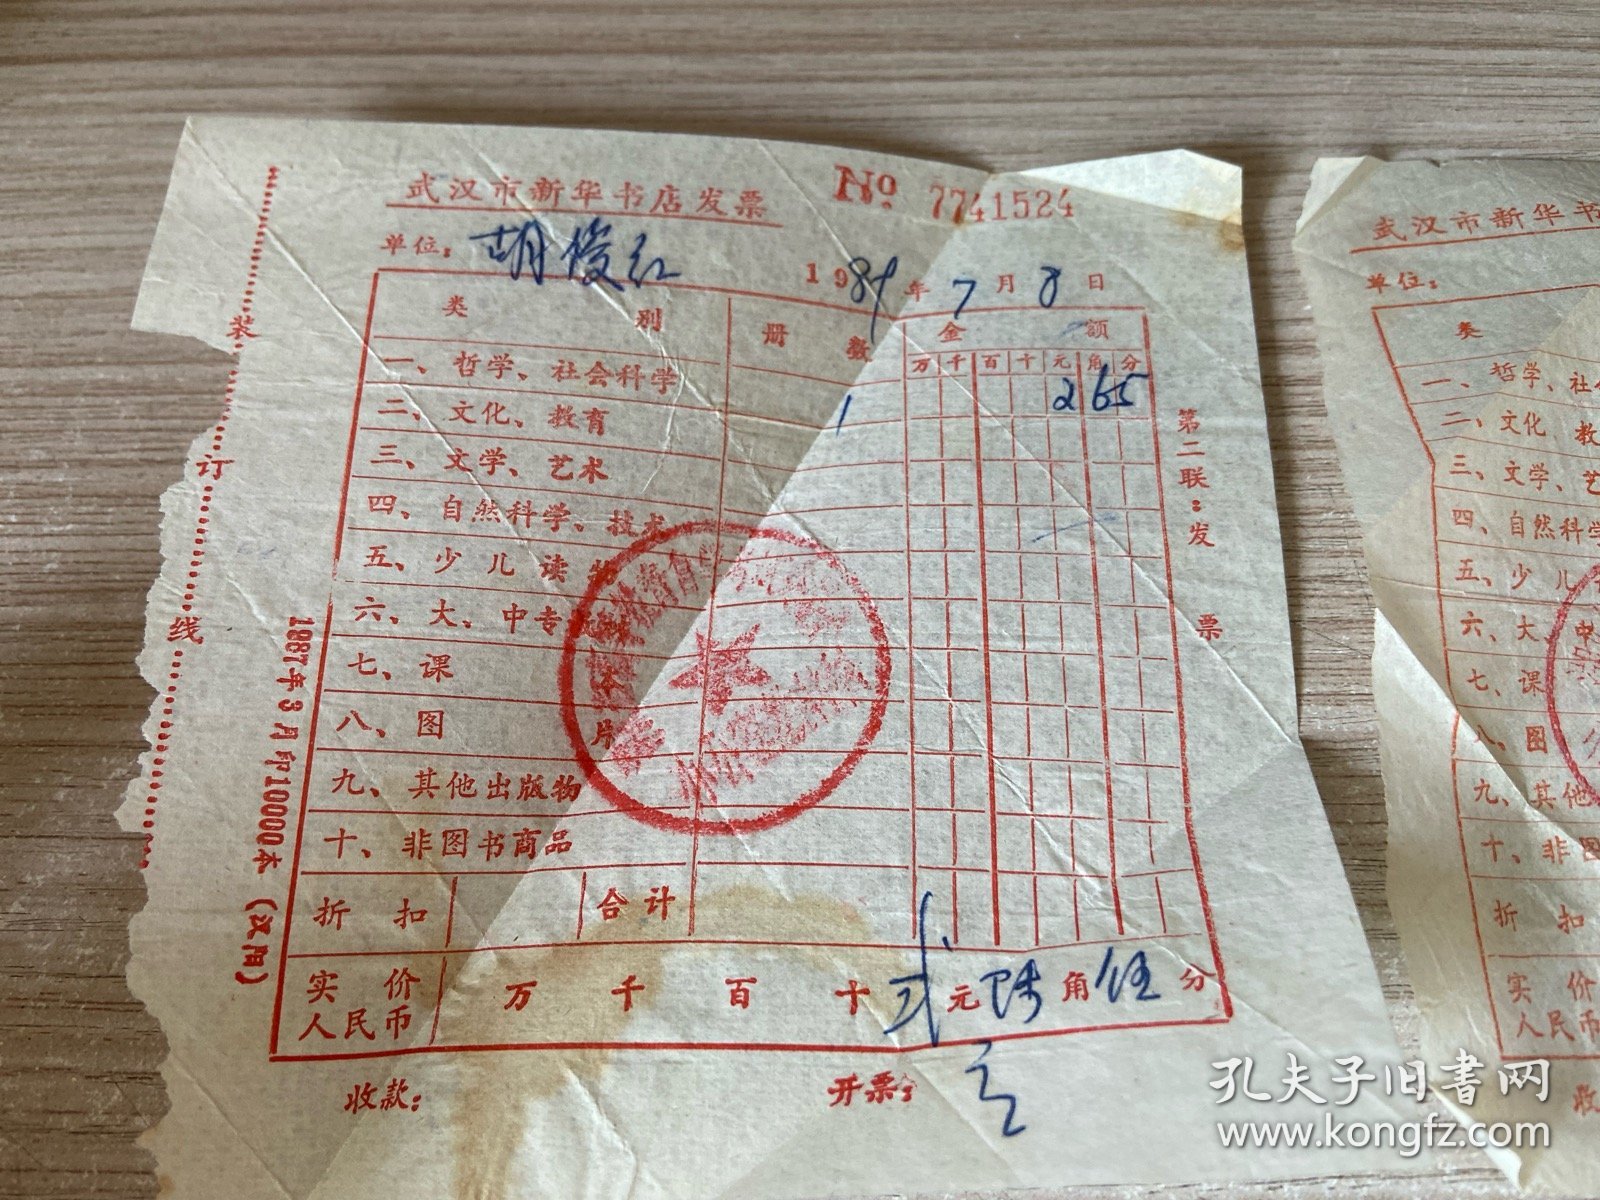 武汉市新华书店发票 No. 7741524
单位: 胡俊红 1989年7月8日
类别 册数 金额
万 千 百 十 元 角 分
一、哲学、社会科学 2 6 5
二、文化、教育 1
三、文学、艺术
四、自然科学、技术
五、少儿读物
六、大、中专
七、课本
八、图片
九、其他出版物
十、非图书商品
折扣 合计
实价
人民币 万 千 百 十 贰 元 陆 角 伍 分
收款: 开票:
第二联:发票
装订线
1887年3月印10000本(汉阳)
武汉市新华书
单位:
类
一、哲学、社
二、文化、教
三、文学、艺
四、自然科学
五、少儿
六、大、中
七、课
八、图
九、其他
十、非图
折扣
实价
人民币
收
孔夫子旧书网
www.kongfz.com